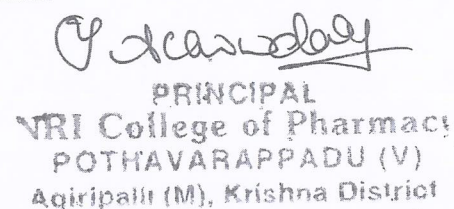 PRINCIPAL
VRI College of Pharmacy
POTHAVARAPPADU (V)
Agiripalli (M), Krishna District